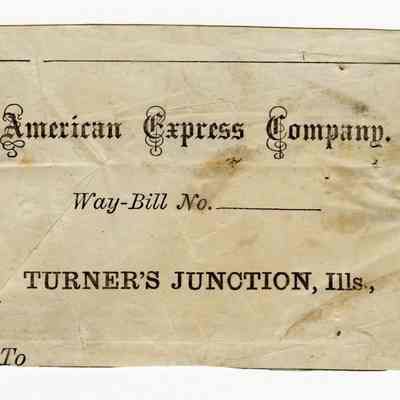 American Express Company.
Way-Bill No.
TURNER'S JUNCTION, Ills.,
To